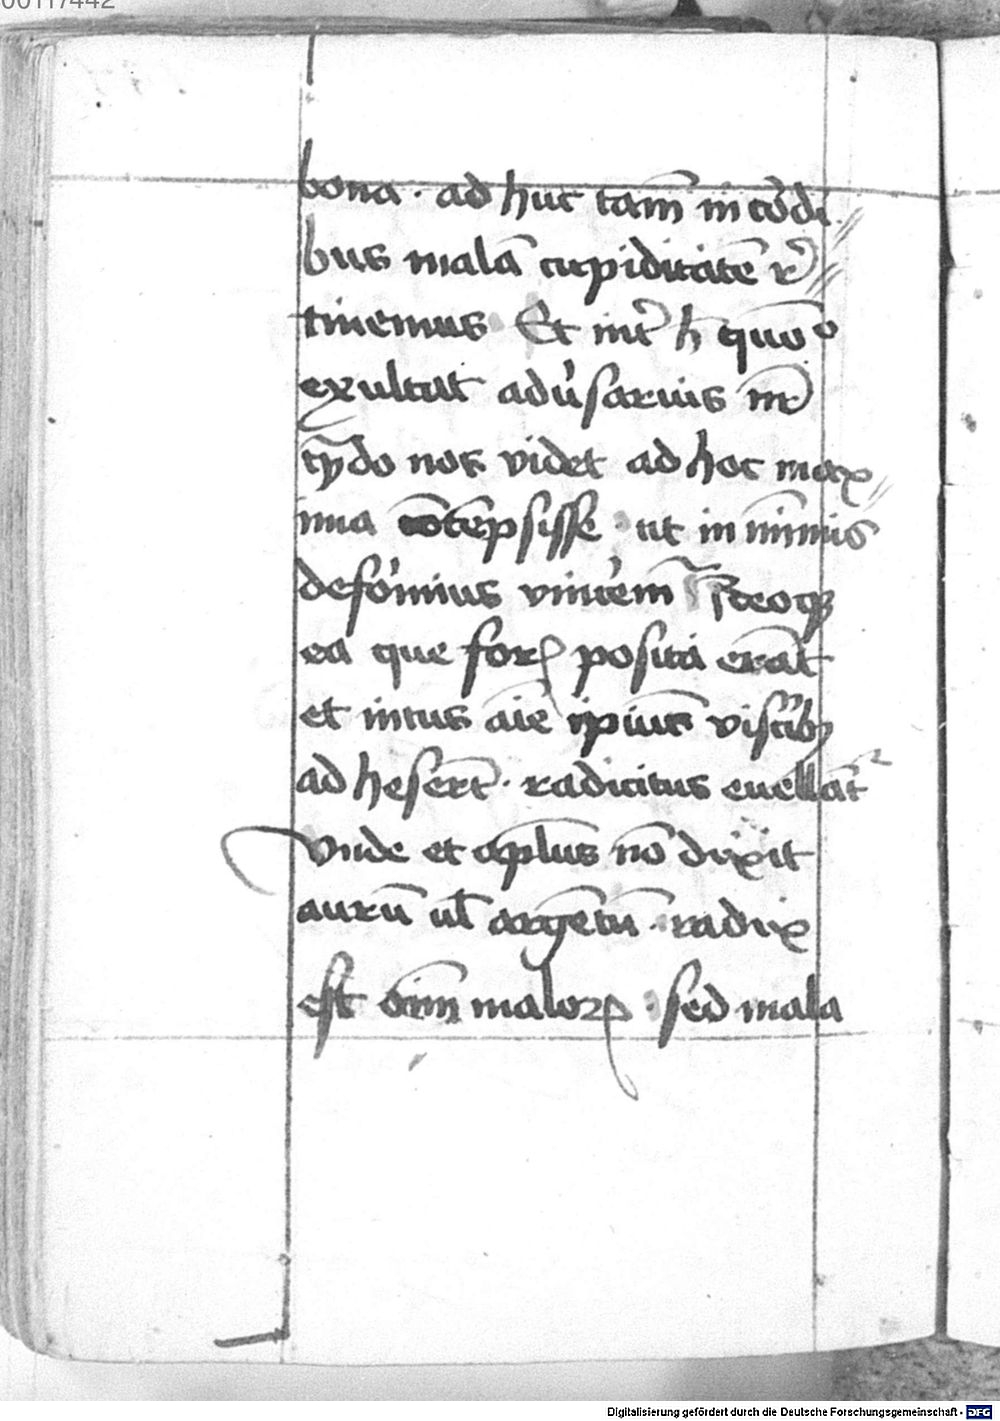 00117442
bona · ad huc tam̄ in cordi
bus malā cupiditatē r̄
tinemus Et int̄ h̄ quo͞o
exultat adu̓sarius nr̄
qn̄do nos videt ad hoc max
ima cōtēpsisse · ut in mīmis
defo̓mius viuēm
ea que forꝭ posita erāt
et intus aīe ipius viscībꝫ
ad heserūt · radicitus euellāt᷑
Vnde et apl̄us nō dixit
aurū ul̄ argētū · radix
est oīm maloꝝ · sed mala
Digitalisierung gefördert durch die Deutsche Forschungsgemeinschaft - DFG